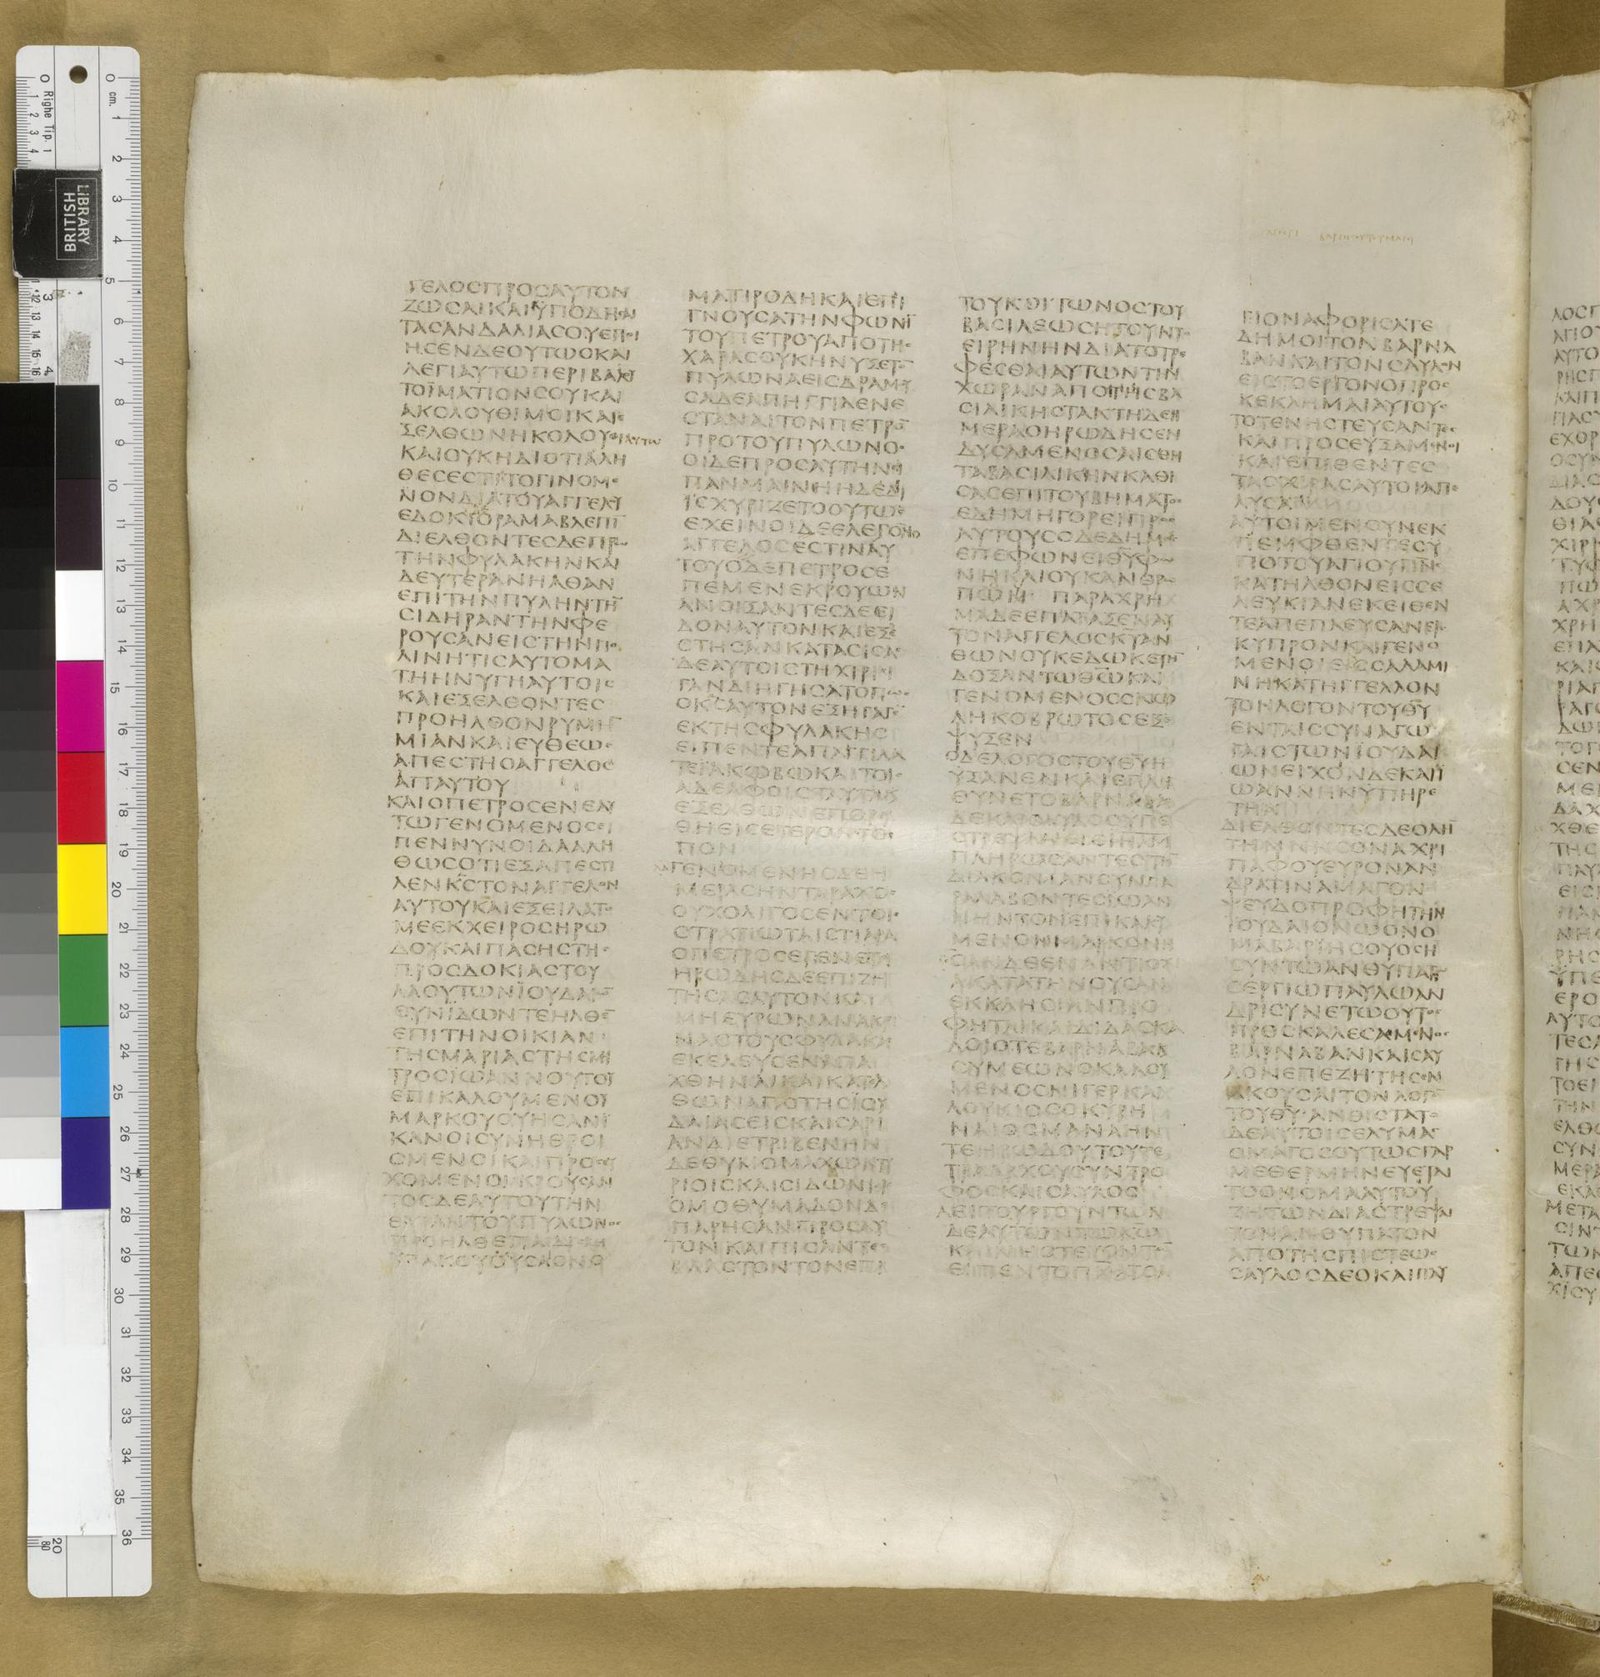 ΓΕΛΟCΠΡΟCΑΥΤΟΝ
ΖΩCΑΙΚΑΙΫΠΟΔΗCΑΙ
ΤΑCΑΝΔΑΛΙΑCΟΥΕΠΟΙ
ΗCΕΝΔΕΟΥΤΩCΚΑΙ
ΛΕΓΙΑΥΤΩΠΕΡΙΒΑΛΟΥ
ΤΟΪΜΑΤΙΟΝCΟΥΚΑΙ
ΑΚΟΛΟΥΘΙΜΟΙΚΑΙΕ
ΞΕΛΘΩΝΗΚΟΛΟΥΘΙΑΥΤΩ
ΚΑΙΟΥΚΗΔΙΟΤΙΑΛΗ
ΘΕCΕCΤΙΤΟΓΙΝΟΜΕ
ΝΟΝΔΙΑΤΟΥΑΓΓΕΛΟΥ
ΕΔΟΚΙΟΡΑΜΑΒΛΕΠΙ
ΔΙΕΛΘΟΝΤΕCΔΕΠΡΩ
ΤΗΝΦΥΛΑΚΗΝΚΑΙ
ΔΕΥΤΕΡΑΝΗΛΘΑΝ
ΕΠΙΤΗΝΠΥΛΗΝΤΗ
CΙΔΗΡΑΝΤΗΝΦΕ
ΡΟΥCΑΝΕΙCΤΗΝΠΟ
ΛΙΝΗΤΙCΑΥΤΟΜΑ
ΤΗΗΝΥΓΗΑΥΤΟΙC
ΚΑΙΕΞΕΛΘΟΝΤΕC
ΠΡΟΗΛΘΟΝΡΥΜΗ
ΜΙΑΝΚΑΙΕΥΘΕΩC
ΑΠΕCΤΗΟΑΓΓΕΛΟC
ΑΠΑΥΤΟΥ
ΚΑΙΟΠΕΤΡΟCΕΝΕΑΥ
ΤΩΓΕΝΟΜΕΝΟCΕΙ
ΠΕΝΝΥΝΟΙΔΑΑΛΗ
ΘΩCΟΤΙΕΞΑΠΕCΤΙ
ΛΕΝΚCΤΟΝΑΓΓΕΛΟΝ
ΑΥΤΟΥΚΑΙΕΞΕΙΛΑΤΟ
ΜΕΕΚΧΕΙΡΟCΗΡΩ
ΔΟΥΚΑΙΠΑCΗCΤΗC
ΠΡΟCΔΟΚΙΑCΤΟΥ
ΛΑΟΥΤΩΝΪΟΥΔΑΙΩ
CΥΝΙΔΩΝΤΕΗΛΘΕ
ΕΠΙΤΗΝΟΙΚΙΑΝ
ΤΗCΜΑΡΙΑCΤΗCΜΗ
ΤΡΟCΪΩΑΝΝΟΥΤΟΥ
ΕΠΙΚΑΛΟΥΜΕΝΟΥ
ΜΑΡΚΟΥΟΥΗCΑΝΙ
ΚΑΝΟΙCΥΝΗΘΡΟΙ
CΜΕΝΟΙΚΑΙΠΡΟCΕΥ
ΧΟΜΕΝΟΙΚΡΟΥCΑΝ
ΤΟCΔΕΑΥΤΟΥΤΗΝ
ΘΥΡΑΝΤΟΥΠΥΛΩΝΟC
ΠΡΟΗΛΘΕΠΑΙΔΙCΚΗ
ΥΠΑΚΟΥΟΥCΑΟΝΟ
ΜΑΤΙΡΟΔΗΚΑΙΕΠΙ
ΓΝΟΥCΑΤΗΝΦΩΝΗ
ΤΟΥΠΕΤΡΟΥΑΠΟΤΗC
ΧΑΡΑCΟΥΚΗΝΥΞΕΤΟ
ΠΥΛΩΝΑΕΙCΔΡΑΜΟΥ
CΑΔΕΑΠΗΓΓΙΛΕΝΕ
CΤΑΝΑΙΤΟΝΠΕΤΡΟ
ΠΡΟΤΟΥΠΥΛΩΝΟC
ΟΙΔΕΠΡΟCΑΥΤΗΝΕΙ
ΠΑΝΜΑΙΝΗΗΔΕΔΙ
ΪCΧΥΡΙΖΕΤΟΟΥΤΩC
ΕΧΕΙΝΟΙΔΕΕΛΕΓΟΝΟ
ΑΓΓΕΛΟCΕCΤΙΝΑΥ
ΤΟΥΟΔΕΠΕΤΡΟCΕ
ΠΕΜΕΝΕΚΡΟΥΩΝ
ΑΝΟΙΞΑΝΤΕCΔΕΕΙ
ΔΟΝΑΥΤΟΝΚΑΙΕΞΕ
CΤΗCΑΝΚΑΤΑCΙCΑC
ΔΕΑΥΤΟΙCΤΗΧΙΡΙCΙ
ΓΑΝΔΙΗΓΗCΑΤΟΠΩC
ΟΚCΑΥΤΟΝΕΞΗΓΑΓΕ
ΕΚΤΗCΦΥΛΑΚΗC
ΕΙΠΕΝΤΕΑΠΑΓΓΙΛΑ
ΤΕΪΑΚΩΒΩΚΑΙΤΟΙC
ΑΔΕΛΦΟΙCΤΑΥΤΑΚΑΙ
ΕΞΕΛΘΩΝΕΠΟΡΕΥ
ΘΗΕΙCΕΤΕΡΟΝΤΟ
ΠΟΝ
ΓΕΝΟΜΕΝΗCΔΕΗ
ΜΕΡΑCΗΝΤΑΡΑΧΟC
ΟΥΚΟΛΙΓΟCΕΝΤΟΙC
CΤΡΑΤΙΩΤΑΙCΤΙΑΡΑ
ΟΠΕΤΡΟCΕΓΕΝΕΤΟ
ΗΡΩΔΗCΔΕΕΠΙΖΗ
ΤΗCΑCΑΥΤΟΝΚΑΙ
ΜΗΕΥΡΩΝΑΝΑΚΡΙ
ΝΑCΤΟΥCΦΥΛΑΚΑC
ΕΚΕΛΕΥCΕΝΑΠΑ
ΧΘΗΝΑΙΚΑΙΚΑΤΕΛ
ΘΩΝΑΠΟΤΗCΪΟΥ
ΔΑΙΑCΕΙCΚΑΙCΑΡΙ
ΑΝΔΙΕΤΡΙΒΕΝΗΝ
ΔΕΘΥΜΟΜΑΧΩΝΤΥ
ΡΙΟΙCΚΑΙCΙΔΩΝΙΟΙC
ΟΜΟΘΥΜΑΔΟΝΔΕ
ΠΑΡΗCΑΝΠΡΟCΑΥ
ΤΟΝΚΑΙΠΙCΑΝΤΕC
ΒΛΑCΤΟΝΤΟΝΕΠΙ
ΤΟΥΚΟΙΤΩΝΟCΤΟΥ
ΒΑCΙΛΕΩCΗΤΟΥΝΤΟ
ΕΙΡΗΝΗΝΔΙΑΤΟΤΡΕ
ΦΕCΘΑΙΑΥΤΩΝΤΗΝ
ΧΩΡΑΝΑΠΟΤΗCΒΑ
CΙΛΙΚΗCΤΑΚΤΗΔΕΗ
ΜΕΡΑΟΗΡΩΔΗCΕΝ
ΔΥCΑΜΕΝΟCΑΙCΘΗ
ΤΑΒΑCΙΛΙΚΗΝΚΑΘΙ
CΑCΕΠΙΤΟΥΒΗΜΑΤΟC
ΕΔΗΜΗΓΟΡΕΙΠΡΟC
ΑΥΤΟΥCΟΔΕΔΗΜΟC
ΕΠΕΦΩΝΕΙΘΥΦΩ
ΝΗΚΑΙΟΥΚΑΝΘΡΩ
ΠΩΝ ΠΑΡΑΧΡΗ
ΜΑΔΕΕΠΑΤΑΞΕΝΑΥ
ΤΟΝΑΓΓΕΛΟCΚΥΑΝ
ΘΩΝΟΥΚΕΔΩΚΕΤΗ
ΔΟΞΑΝΤΩΘΩΚΑΙ
ΓΕΝΟΜΕΝΟCCΚΩ
ΛΗΚΟΒΡΩΤΟCΕΞΕ
ΨΥΞΕΝ
ΟΔΕΛΟΓΟCΤΟΥΘΥΗ
ΥΞΑΝΕΝΚΑΙΕΠΛΗ
ΘΥΝΕΤΟΒΑΡΝΑΒΑC
ΔΕΚΑΙCΑΥΛΟCΥΠΕ
CΤΡΕΨΑΝΕΙCΪΗΛΗΜ
ΠΛΗΡΩCΑΝΤΕCΤΗ
ΔΙΑΚΟΝΙΑΝCΥΝΠΑ
ΡΑΛΑΒΟΝΤΕCΪΩΑΝ
ΝΗΝΤΟΝΕΠΙΚΛΗ
ΜΕΝΟΝΜΑΡΚΟΝΗ
CΑΝΔΕΕΝΑΝΤΙΟΧΙ
ΑΚΑΤΑΤΗΝΟΥCΑΝ
ΕΚΚΛΗCΙΑΝΠΡΟ
ΦΗΤΑΙΚΑΙΔΙΔΑCΚΑ
ΛΟΙΟΤΕΒΑΡΝΑΒΑC
CΥΜΕΩΝΟΚΑΛΟΥ
ΜΕΝΟCΝΙΓΕΡΚΑΙ
ΛΟΥΚΙΟCΟΚΥΡΗ
ΝΑΙΟCΜΑΝΑΗΝ
ΤΕΗΡΩΔΟΥΤΟΥΤΕ
ΤΡΑΑΡΧΟΥCΥΝΤΡΟ
ΦΟCΚΑΙCΑΥΛΟC
ΛΕΙΤΟΥΡΓΟΥΝΤΩΝ
ΔΕΑΥΤΩΝΤΩΚΩ
ΚΑΙΝΗCΤΕΥΟΝΤΩ
ΕΙΠΕΝΤΟΠΝΑΤΟΑ
ΓΙΟΝΑΦΟΡΙCΑΤΕ
ΔΗΜΟΙΤΟΝΒΑΡΝΑ
ΒΑΝΚΑΙΤΟΝCΑΥΛΟΝ
ΕΙCΤΟΕΡΓΟΝΟΠΡΟC
ΚΕΚΛΗΜΑΙΑΥΤΟΥC
ΤΟΤΕΝΗCΤΕΥCΑΝΤΕC
ΚΑΙΠΡΟCΕΥΞΑΜΕΝΟΙ
ΚΑΙΕΠΙΘΕΝΤΕC
ΤΑCΧΙΡΑCΑΥΤΟΙCΑΠΕ
ΛΥCΑΝ
ΑΥΤΟΙΜΕΝΟΥΝΕΚ
ΠΕΜΦΘΕΝΤΕCΥ
ΠΟΤΟΥΑΓΙΟΥΠΝC
ΚΑΤΗΛΘΟΝΕΙCCΕ
ΛΕΥΚΙΑΝΕΚΕΙΘΕΝ
ΤΕΑΠΕΠΛΕΥCΑΝΕΙC
ΚΥΠΡΟΝΚΑΙΓΕΝΟ
ΜΕΝΟΙΕΙCCΑΛΑΜΙ
ΝΗΚΑΤΗΓΓΕΛΛΟΝ
ΤΟΝΛΟΓΟΝΤΟΥΘΥ
ΕΝΤΑΙCCΥΝΑΓΩ
ΓΑΙCΤΩΝΪΟΥΔΑΙ
ΩΝΕΙΧΟΝΔΕΚΑΙΪ
ΩΑΝΝΗΝΥΠΗΡΕ
ΤΗΝ
ΔΙΕΛΘΟΝΤΕCΔΕΟΛΗ
ΤΗΝΝΗCΟΝΑΧΡΙ
ΠΑΦΟΥΕΥΡΟΝΑΝ
ΔΡΑΤΙΝΑΜΑΓΟΝ
ΨΕΥΔΟΠΡΟΦΗΤΗΝ
ΙΟΥΔΑΙΟΝΩΟΝΟ
ΜΑΒΑΡΙΗCΟΥΟCΗ
CΥΝΤΩΑΝΘΥΠΑΤΩ
CΕΡΓΙΩΠΑΥΛΩΑΝ
ΔΡΙCΥΝΕΤΩΟΥΤΟC
ΠΡΟCΚΑΛΕCΑΜΕΝΟC
ΒΑΡΝΑΒΑΝΚΑΙCΑΥ
ΛΟΝΕΠΕΖΗΤΗCΕΝ
ΑΚΟΥCΑΙΤΟΝΛΟΓΟ
ΤΟΥΘΥΑΝΘΙCΤΑΤΟ
ΔΕΑΥΤΟΙCΕΛΥΜΑC
ΟΜΑΓΟCΟΥΤΩCΓΑΡ
ΜΕΘΕΡΜΗΝΕΥΕΤΑΙ
ΤΟΟΝΟΜΑΑΥΤΟΥ
ΖΗΤΩΝΔΙΑCΤΡΕΨΑΙ
ΤΟΝΑΝΘΥΠΑΤΟΝ
ΑΠΟΤΗCΠΙCΤΕΩC
CΑΥΛΟCΔΕΟΚΑΙΠΑΥ
BRITISH
LIBRARY